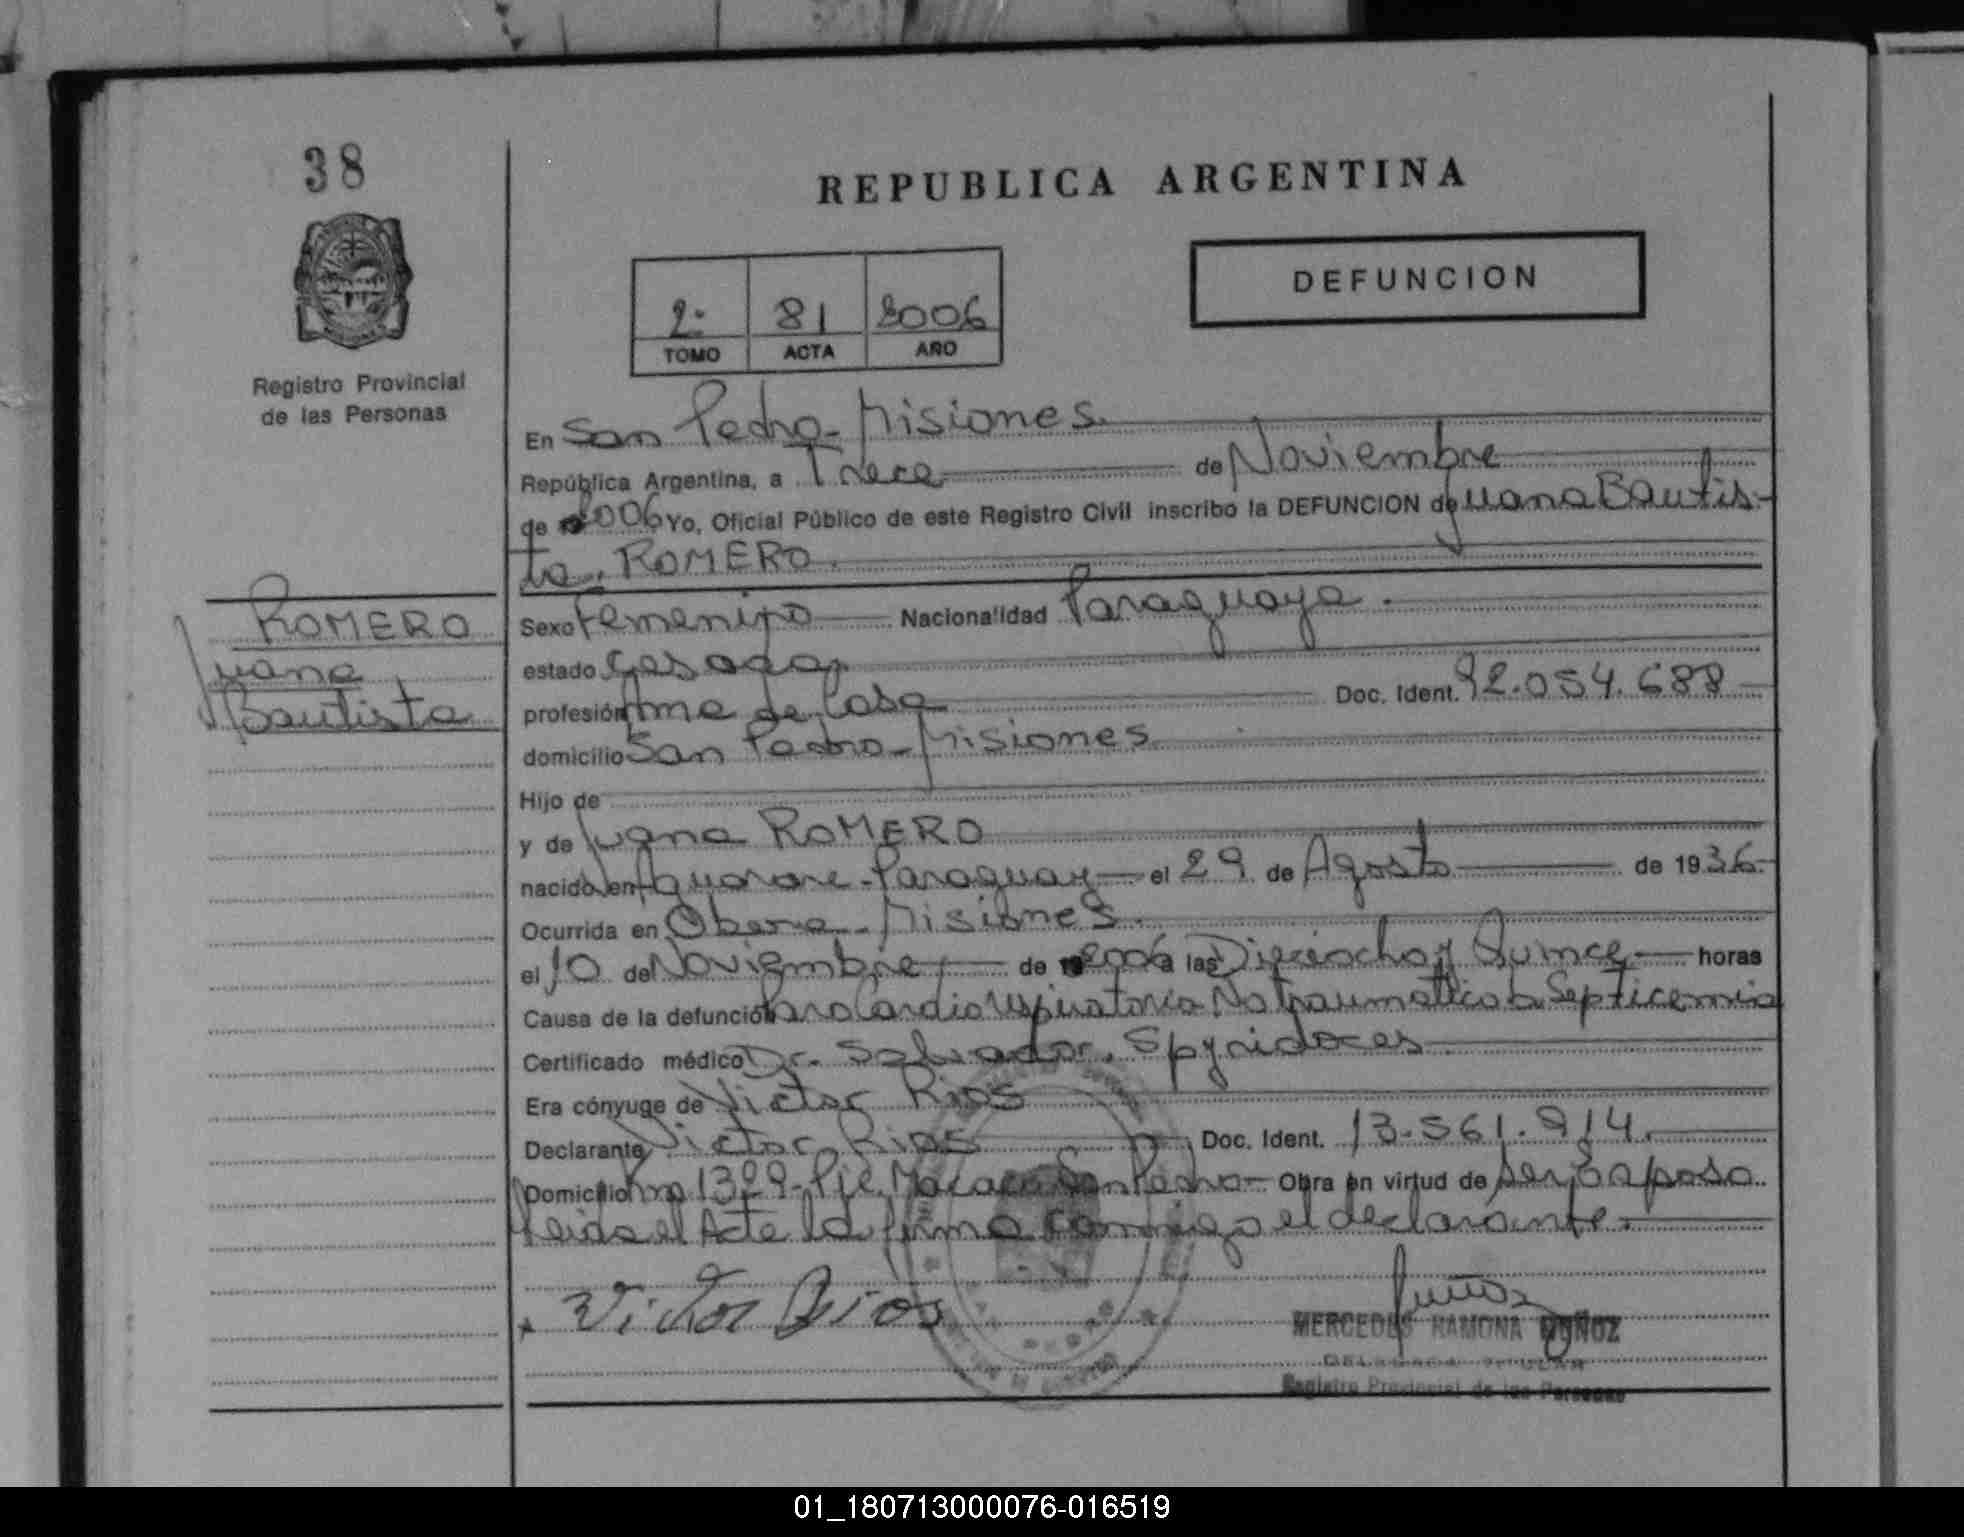 38
REPUBLICA ARGENTINA
DEFUNCION
2: 81 2006
TOMO ACTA AÑO
Registro Provincial
de las Personas
En San Pedro - Misiones.
República Argentina, a Trece de Noviembre
de 2006 Yo, Oficial Público de este Registro Civil inscribo la DEFUNCION de Juana Bautis-
ta. ROMERO.
ROMERO
Juana
Bautista
Sexo Femenino Nacionalidad Paraguaya.
estado Casada
profesión Ama de Casa Doc. Ident. 92.054.688
domicilio San Pedro - Misiones
Hijo de
y de Juana ROMERO
nacido en Paraguay el 29 de Agosto de 1936
Ocurrida en Obera - Misiones.
el 10 de Noviembre de 2006 a las Dieciocho y Quince horas
Causa de la defunción Paro Cardio respiratorio No traumatico Septicemia
Certificado médico Dr. Salvador.
Era cónyuge de Victor Rios
Declarante Victor Rios Doc. Ident. 13.561.914.
Domicilio Km 1329 - Pje. San Pedro - Obra en virtud de ser Esposo.
leida el Acta la firma conmigo el declarante.
Victor Rios
MERCEDES RAMONA MUÑOZ
Registro Provincial de las Personas
01_180713000076-016519